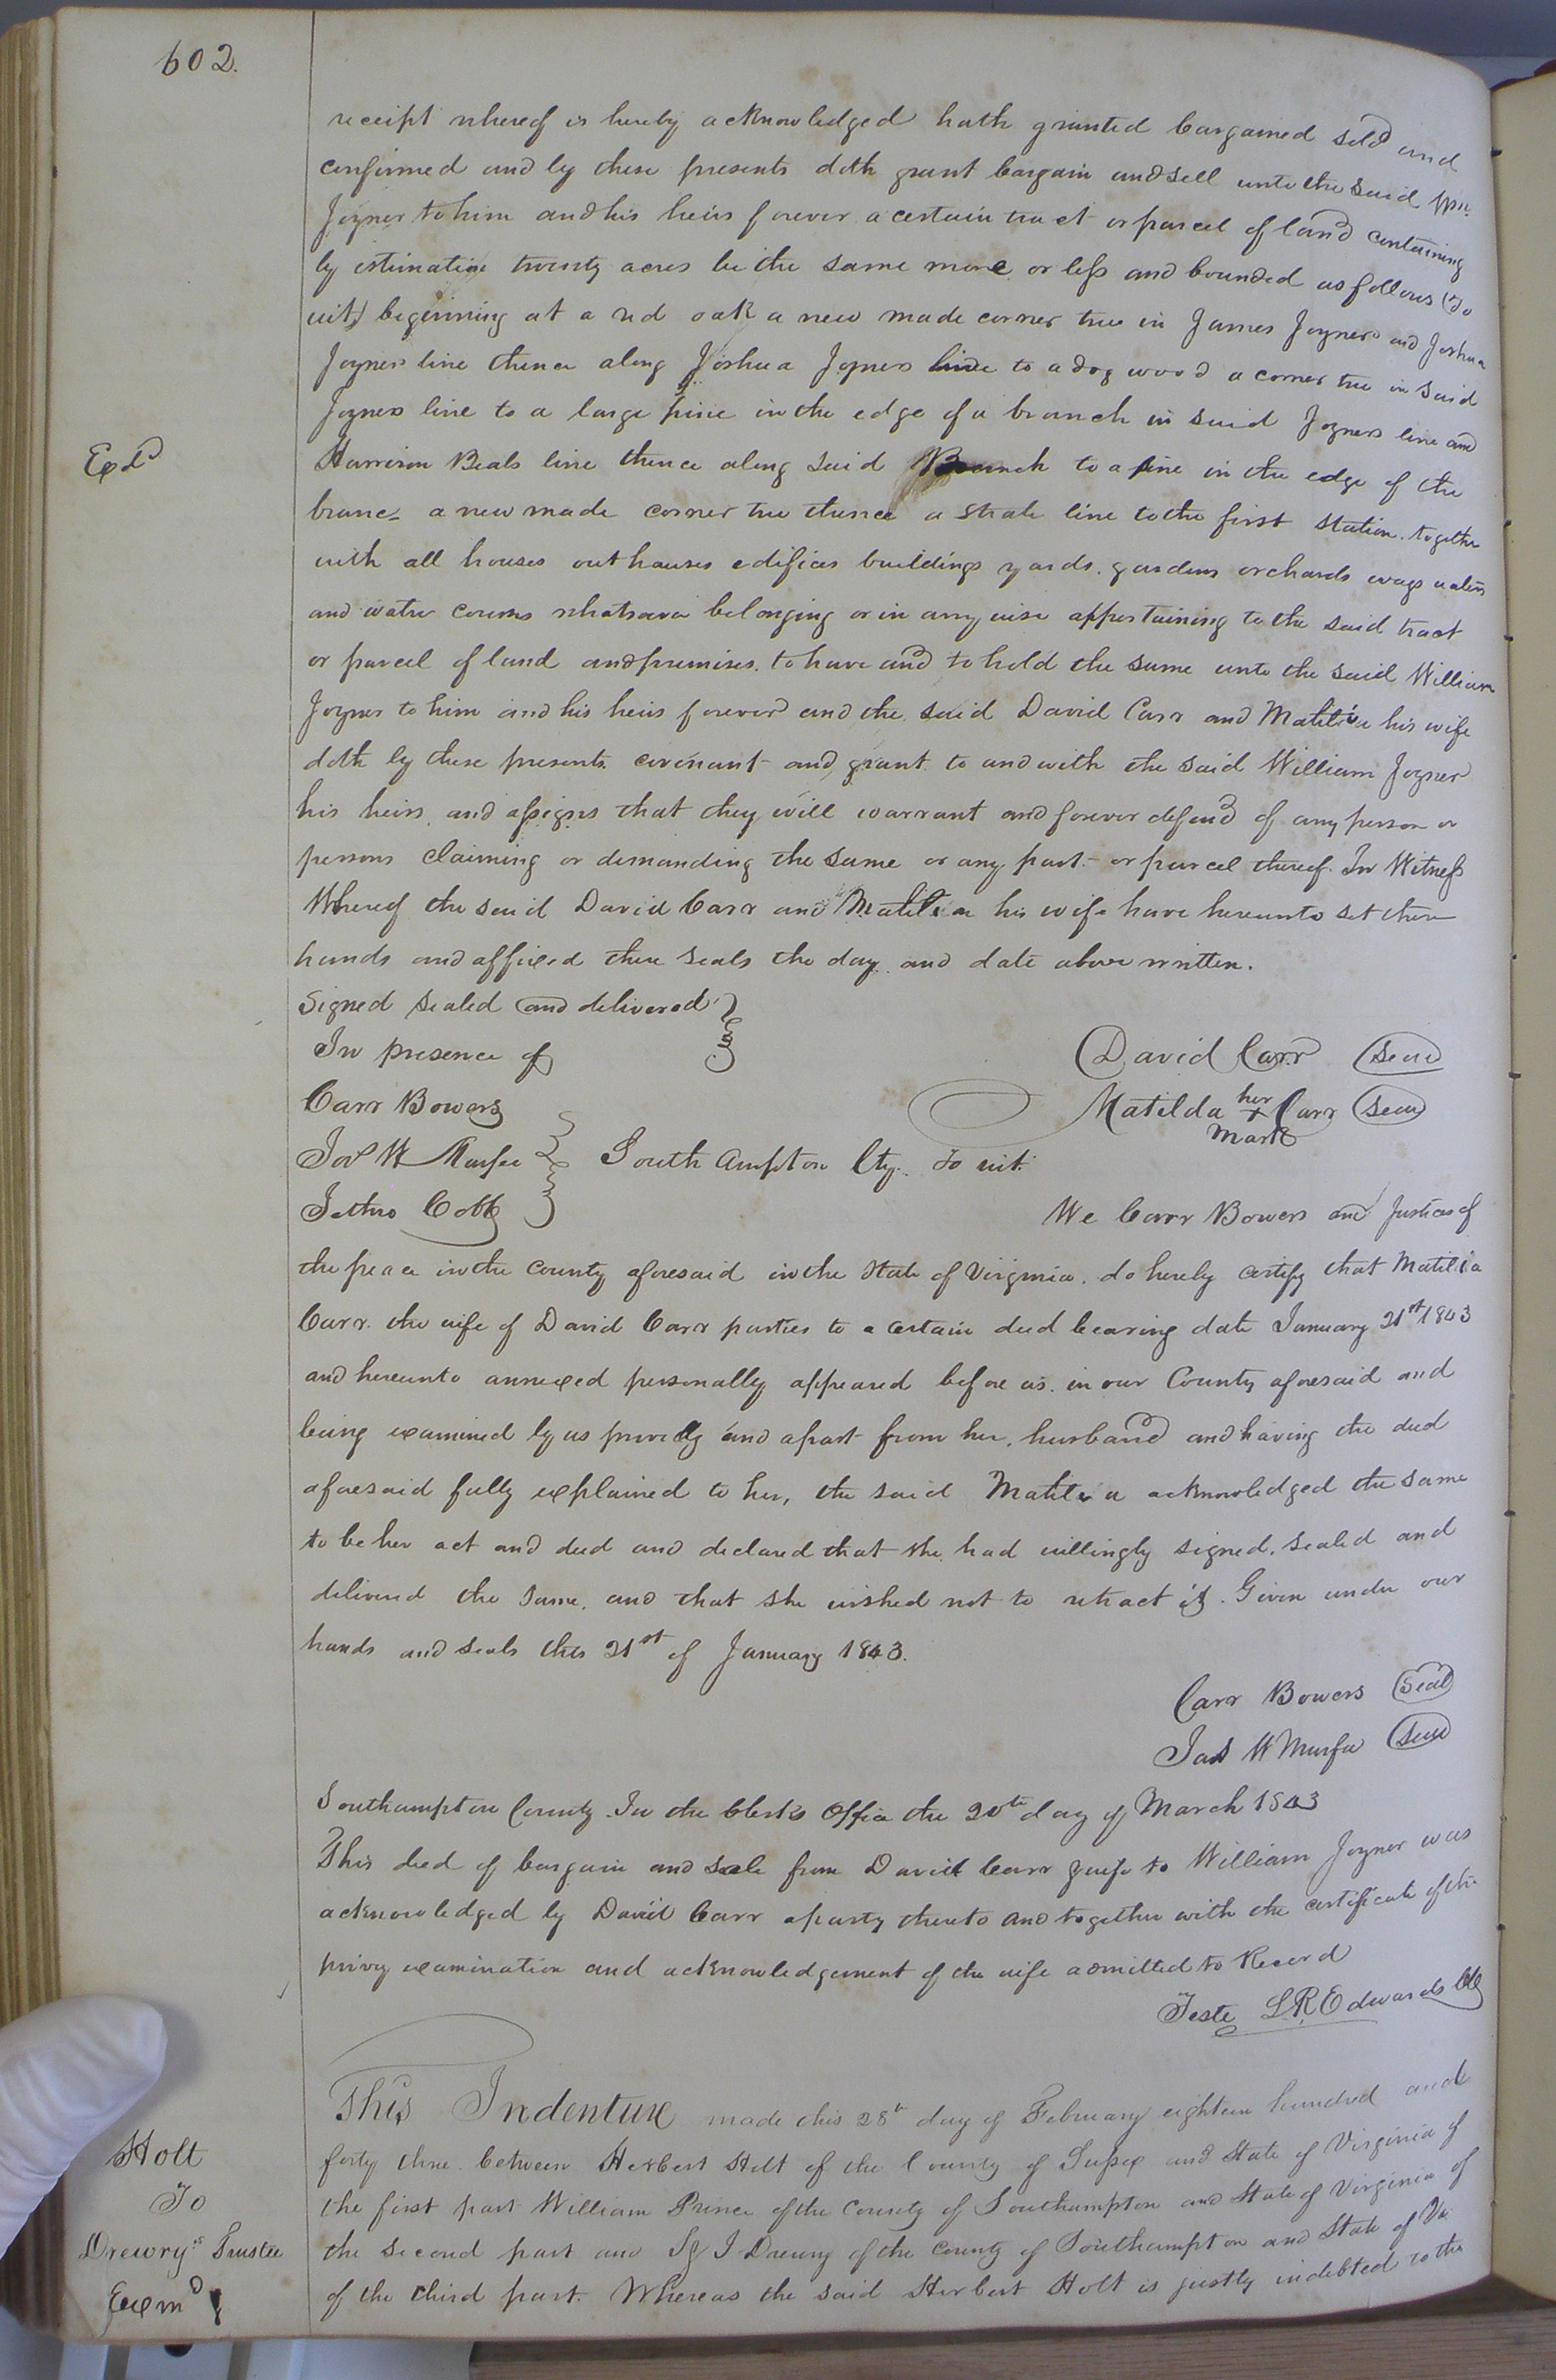 602.
receipt whereof is hereby acknowledged hath granted bargained sold and
confirmed and by these presents doth grant bargain and sell unto the said Wm.
Joyner to him and his heirs forever a certain tract or parcel of land containing
by estimation twenty acres be the same more or less and bounded as follows (To
wit) beginning at a red oak a new made corner tree in James Joyners and Joshua
Joyners line thence along Joshua Joyners line to a dog wood a corner tree in said
Joyners line to a large pine in the edge of a branch in said Joyners line and
Exd
Harrison Beals line thence along said Branch to a pine in the edge of the
branc- a new made corner tree thence a strate line to the first station. together
with all houses outhouses edifices buildings yards. gardens orchards ways waters
and water courses whatsoever belonging or in any wise appertaining to the said tract
or parcel of land and premises. to have and to hold the same unto the said William
Joyner to him and his heirs forever and the said David Carr and Matilda his wife
doth by these presents covenant and grant to and with the said William Joyner
his heirs and assigns that they will warrant and forever defend of any person or
persons claiming or demanding the same or any part or parcel thereof. In Witness
Whereof the said David Carr and Matilda his wife have hereunto set there
hands and affixed there seals the day and date above written.
Signed sealed and delivered
In presence of
David Carr Seal
Carr Bowers
Matilda her + Carr Seal
mark
Jas W Murfee
South Ampton Cty. to wit.
Jethro Cobb
We Carr Bowers and Justices of
the peace in the County aforesaid in the State of Virginia. do hereby certify that Matilda
Carr. the wife of David Carr parties to a certain deed bearing date January 21st 1843
and hereunto annexed personally appeared before us. in our County aforesaid and
being examined by us privily and apart from her. husband and having the deed
aforesaid fully explained to her, the said Matilda acknowledged the same
to be her act and deed and declared that she had willingly signed. sealed and
delivered the same. and that she wished not to retract it. Given under our
hands and seals this 21st of January 1843.
Carr Bowers Seal
Jas W Murfee Seal
Southampton County. In the Clerks Office the 20th day of March 1843
This deed of bargain and sale from David Carr & wife to William Joyner was
acknowledged by David Carr a party thereto and together with the certificate of the
privy examination and acknowledgement of the wife admitted to Record
Teste L R Edwards Clk
This Indenture made this 28th day of February eighteen hundred and
forty three. between Herbert Holt of the County of Sussex and State of Virginia of
the first part William Prince of the County of Southampton and State of Virginia of
the second part and J Drewry of the County of Southampton and State of Va
of the third part. Whereas the said Herbert Holt is justly indebted to the
Holt
To
Drewry Trustee
Exmd